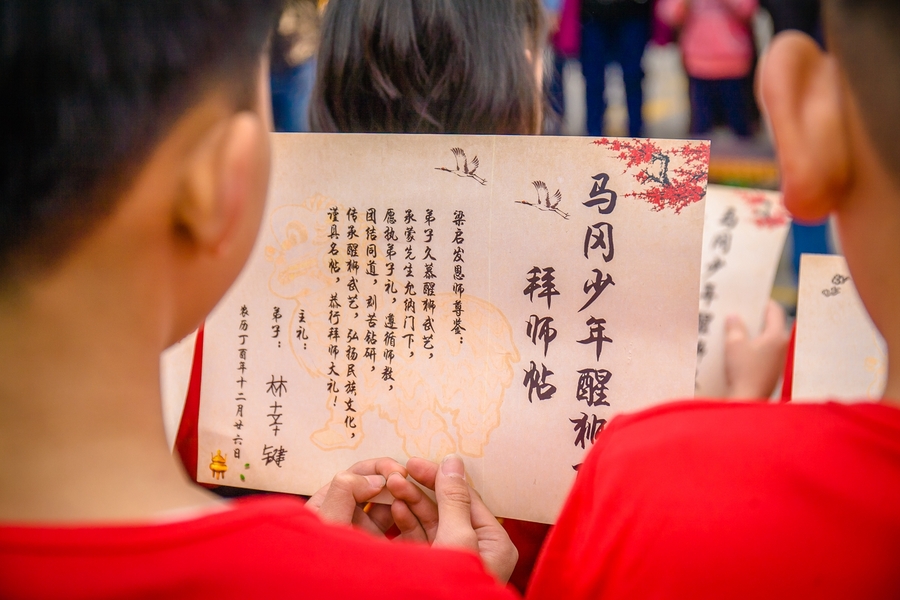 马冈少年醒狮
拜师帖
梁启发恩师尊鉴：
弟子久慕醒狮武艺，
承蒙先生允纳门下，
愿执弟子礼，遵循师教，
团结同道，刻苦钻研，
传承醒狮武艺，弘扬民族文化，
谨具名帖，恭行拜师大礼！
主礼：
弟子：林幸键
农历丁酉年十二月廿六日
马冈少年